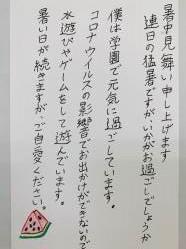 暑中見舞い申し上げます
連日の猛暑ですがいかがお過ごしでしょうか
僕は学園で元気に過ごしています。
コロナウイルスの影響でお出かけができないので
水遊びやゲームをして遊んでいます。
暑い日が続きますが、ご自愛ください。